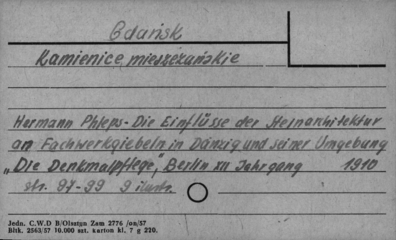 Gdańsk
Kamienice mieszczańskie
Hermann Phleps - Die Einflüsse der Steinarchitektur
an Fachwerkgiebeln in Danzig und seiner Umgebung
„Die Denkmalpflege", Berlin XII Jahrgang 1910
str. 97-99 9 ilustr.
Jedn. C.W.D B/Olsztyn Zam 2776 /on/57
Bltk. 2563/57 10.000 szt. karton kl. 7 g 220.